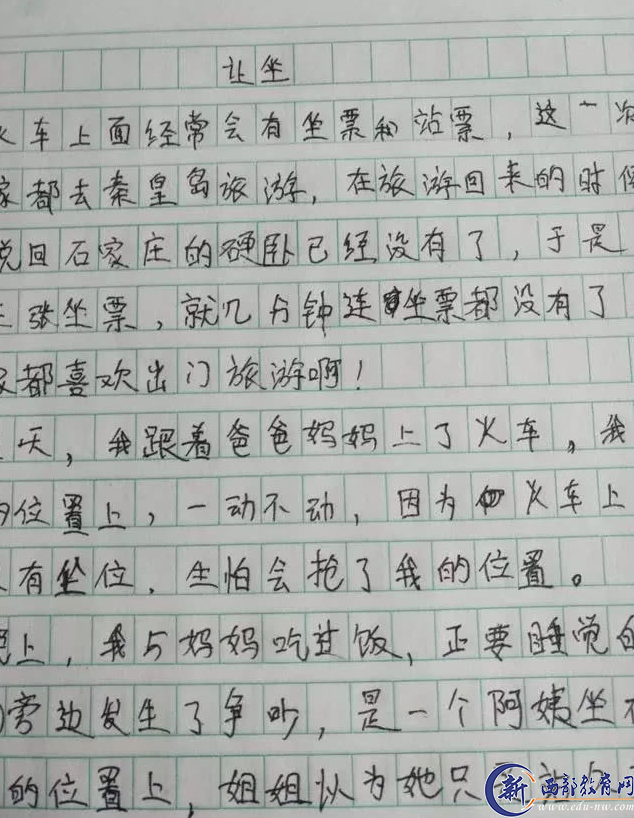 让坐
火车上面经常会有坐票和站票，这一次
家都去秦皇岛旅游，在旅游回来的时候
说回石家庄的硬卧已经没有了，于是
张坐票，就几分钟连坐票都没有了
家都喜欢出门旅游啊！
天，我跟着爸爸妈妈上了火车。我
的位置上，一动不动，因为火车上
有坐位，生怕会抢了我的位置。
晚上，我与妈妈吃过饭，正要睡觉的
旁边发生了争吵，是一个阿姨坐在
的位置上，姐姐以为她只
新 西部教育网
www.edu-nw.com